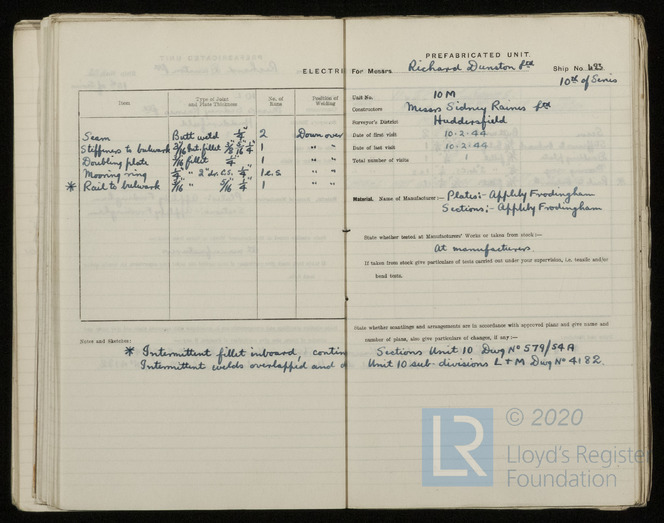 ELECTRI
Item
Type of Joint and Plate Thickness
No. of Runs
Position of Welding
Seam Butt weld 1/4" 2 Down over
Stiffeners to bulwark 3/16 Int. fillet 1
Doubling plate fillet 1/4" 1 " "
Mooring ring 1/4" " 1 e.s " "
* Rail to bulwark 3/16 " 5/16 1/4 1 " "
Notes and Sketches:
* Intermittent fillet inboard, contin
Intermittent welds overlapped and
PREFABRICATED UNIT.
For Messrs. Richard Dunston Ltd Ship No.
10th of Series
Unit No. 10 M
Constructors Messrs Sidney Raines Ltd
Surveyor's District Huddersfield
Date of first visit 10.2.44
Date of last visit 10.2.44
Total number of visits 1
Material. Name of Manufacturer:— Plates:- Appleby Frodingham
Sections:- Appleby Frodingham
State whether tested at Manufacturers' Works or taken from stock:—
At manufacturers.
If taken from stock give particulars of tests carried out under your supervision, i.e. tensile and/or
bend tests.
State whether scantlings and arrangements are in accordance with approved plans and give name and
number of plans, also give particulars of changes, if any:—
Sections Unit 10 Dwg No 579/54A
Unit 10 sub-divisions L + M Dwg No 4182.
© 2020
LR
Lloyd's Register
Foundation